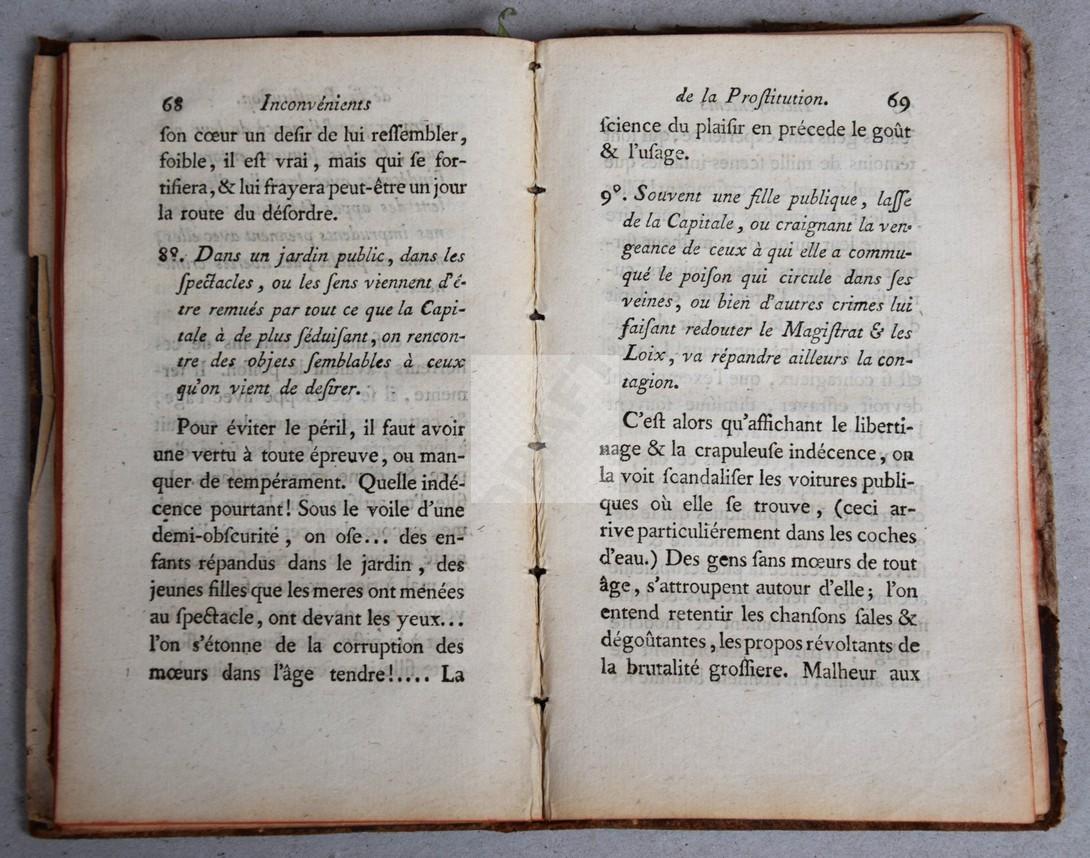 68 Inconvénients
ſon cœur un deſir de lui reſſembler,
foible, il eſt vrai, mais qui ſe for-
tifiera, & lui frayera peut-être un jour
la route du déſordre.
8º. Dans un jardin public, dans les
ſpectacles, ou les ſens viennent d'ê-
tre remués par tout ce que la Capi-
tale à de plus ſéduiſant, on rencon-
tre des objets ſemblables à ceux
qu'on vient de deſirer.
Pour éviter le péril, il faut avoir
une vertu à toute épreuve, ou man-
quer de tempérament. Quelle indé-
cence pourtant! Sous le voile d'une
demi-obſcurité, on oſe... des en-
fants répandus dans le jardin, des
jeunes filles que les meres ont menées
au ſpectacle, ont devant les yeux...
l'on s'étonne de la corruption des
mœurs dans l'âge tendre!.... La
de la Proſtitution. 69
ſcience du plaiſir en précede le goût
& l'uſage.
9º. Souvent une fille publique, laſſe
de la Capitale, ou craignant la ven-
geance de ceux à qui elle a commu-
qué le poiſon qui circule dans ſes
veines, ou bien d'autres crimes lui
faiſant redouter le Magiſtrat & les
Loix, va répandre ailleurs la con-
tagion.
C'eſt alors qu'affichant le liberti-
nage & la crapuleuſe indécence, on
la voit ſcandaliſer les voitures publi-
ques où elle ſe trouve, (ceci ar-
rive particuliérement dans les coches
d'eau.) Des gens ſans mœurs de tout
âge, s'attroupent autour d'elle; l'on
entend retentir les chanſons ſales &
dégoûtantes, les propos révoltants de
la brutalité groſſiere. Malheur aux